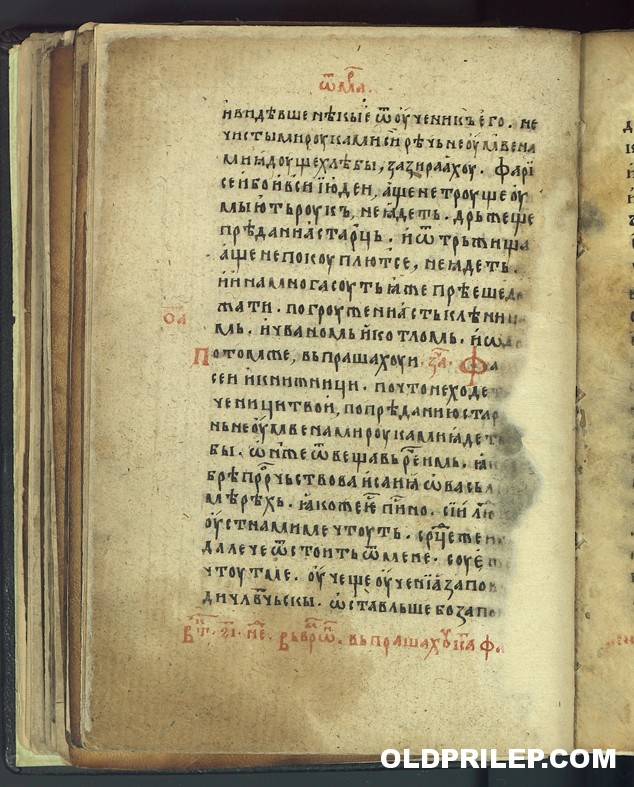 ѿ мрⷦ҇а.
и видѣвше нѣкыѥ ѿ оученикъ ѥго. не
чистыми роуками си рѣчь не оумвена
ми ꙗдоущехлѣбы, зазираахоу. фарі
сеи бо и вси іюдеи, аще не троуще оу
мыютьроукъ, не ꙗдеть. дрьжеще
прѣданиꙗ старⷰць. и ѿ трьжища
аще не покоуплютсе, не ꙗдеть.
и ина многа соуть ꙗже прѣѥше
жати. погроужениꙗ стькленн
мь. и чваномь и котломь. и
ѻ҃а
Потомже, въпрашахоу и. за҃. Фа
сеи и книжници. почто не ходе
ченици твои, по прѣданию стар
нь не оумвенами роуками ꙗде
бы. ѡнже ѿвещавь рⷱ҇е имь.
брѣ пррⷪ҇чьствова исаиꙗ ѡ васьл
мѣрѣхь. ꙗкоже ѥⷭ҇ пи҃но. сіи лю
оустнами ме чтоуть. срⷣце же и
далече ѿстоить ѿ мене. соуѥ
чтоут ме. оучеще оучениꙗ запо
ди чл҃вчьскы. ѡставльше бо запо
въпрашахꙋ іс҃а ф
OLDPRILEP.COM